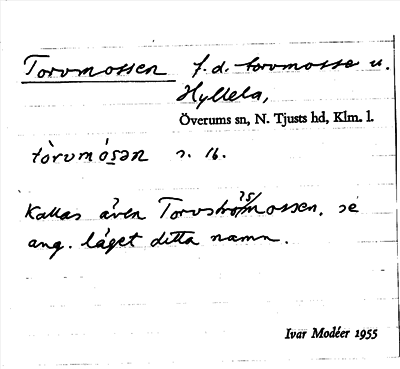 Torvmossen f.d. torvmosse u.
Hyllela,
Överums sn, N. Tjusts hd, Klm. l.
tòrvmósən s. 16.
Kallas även Torvströmossen, se
ang. läget detta namn.
Ivar Modéer 1955